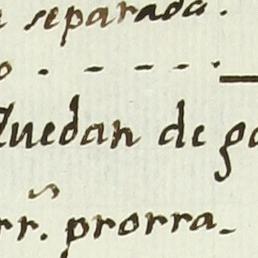 separada.
o . - - - .
Quedan de
rr. prorra-